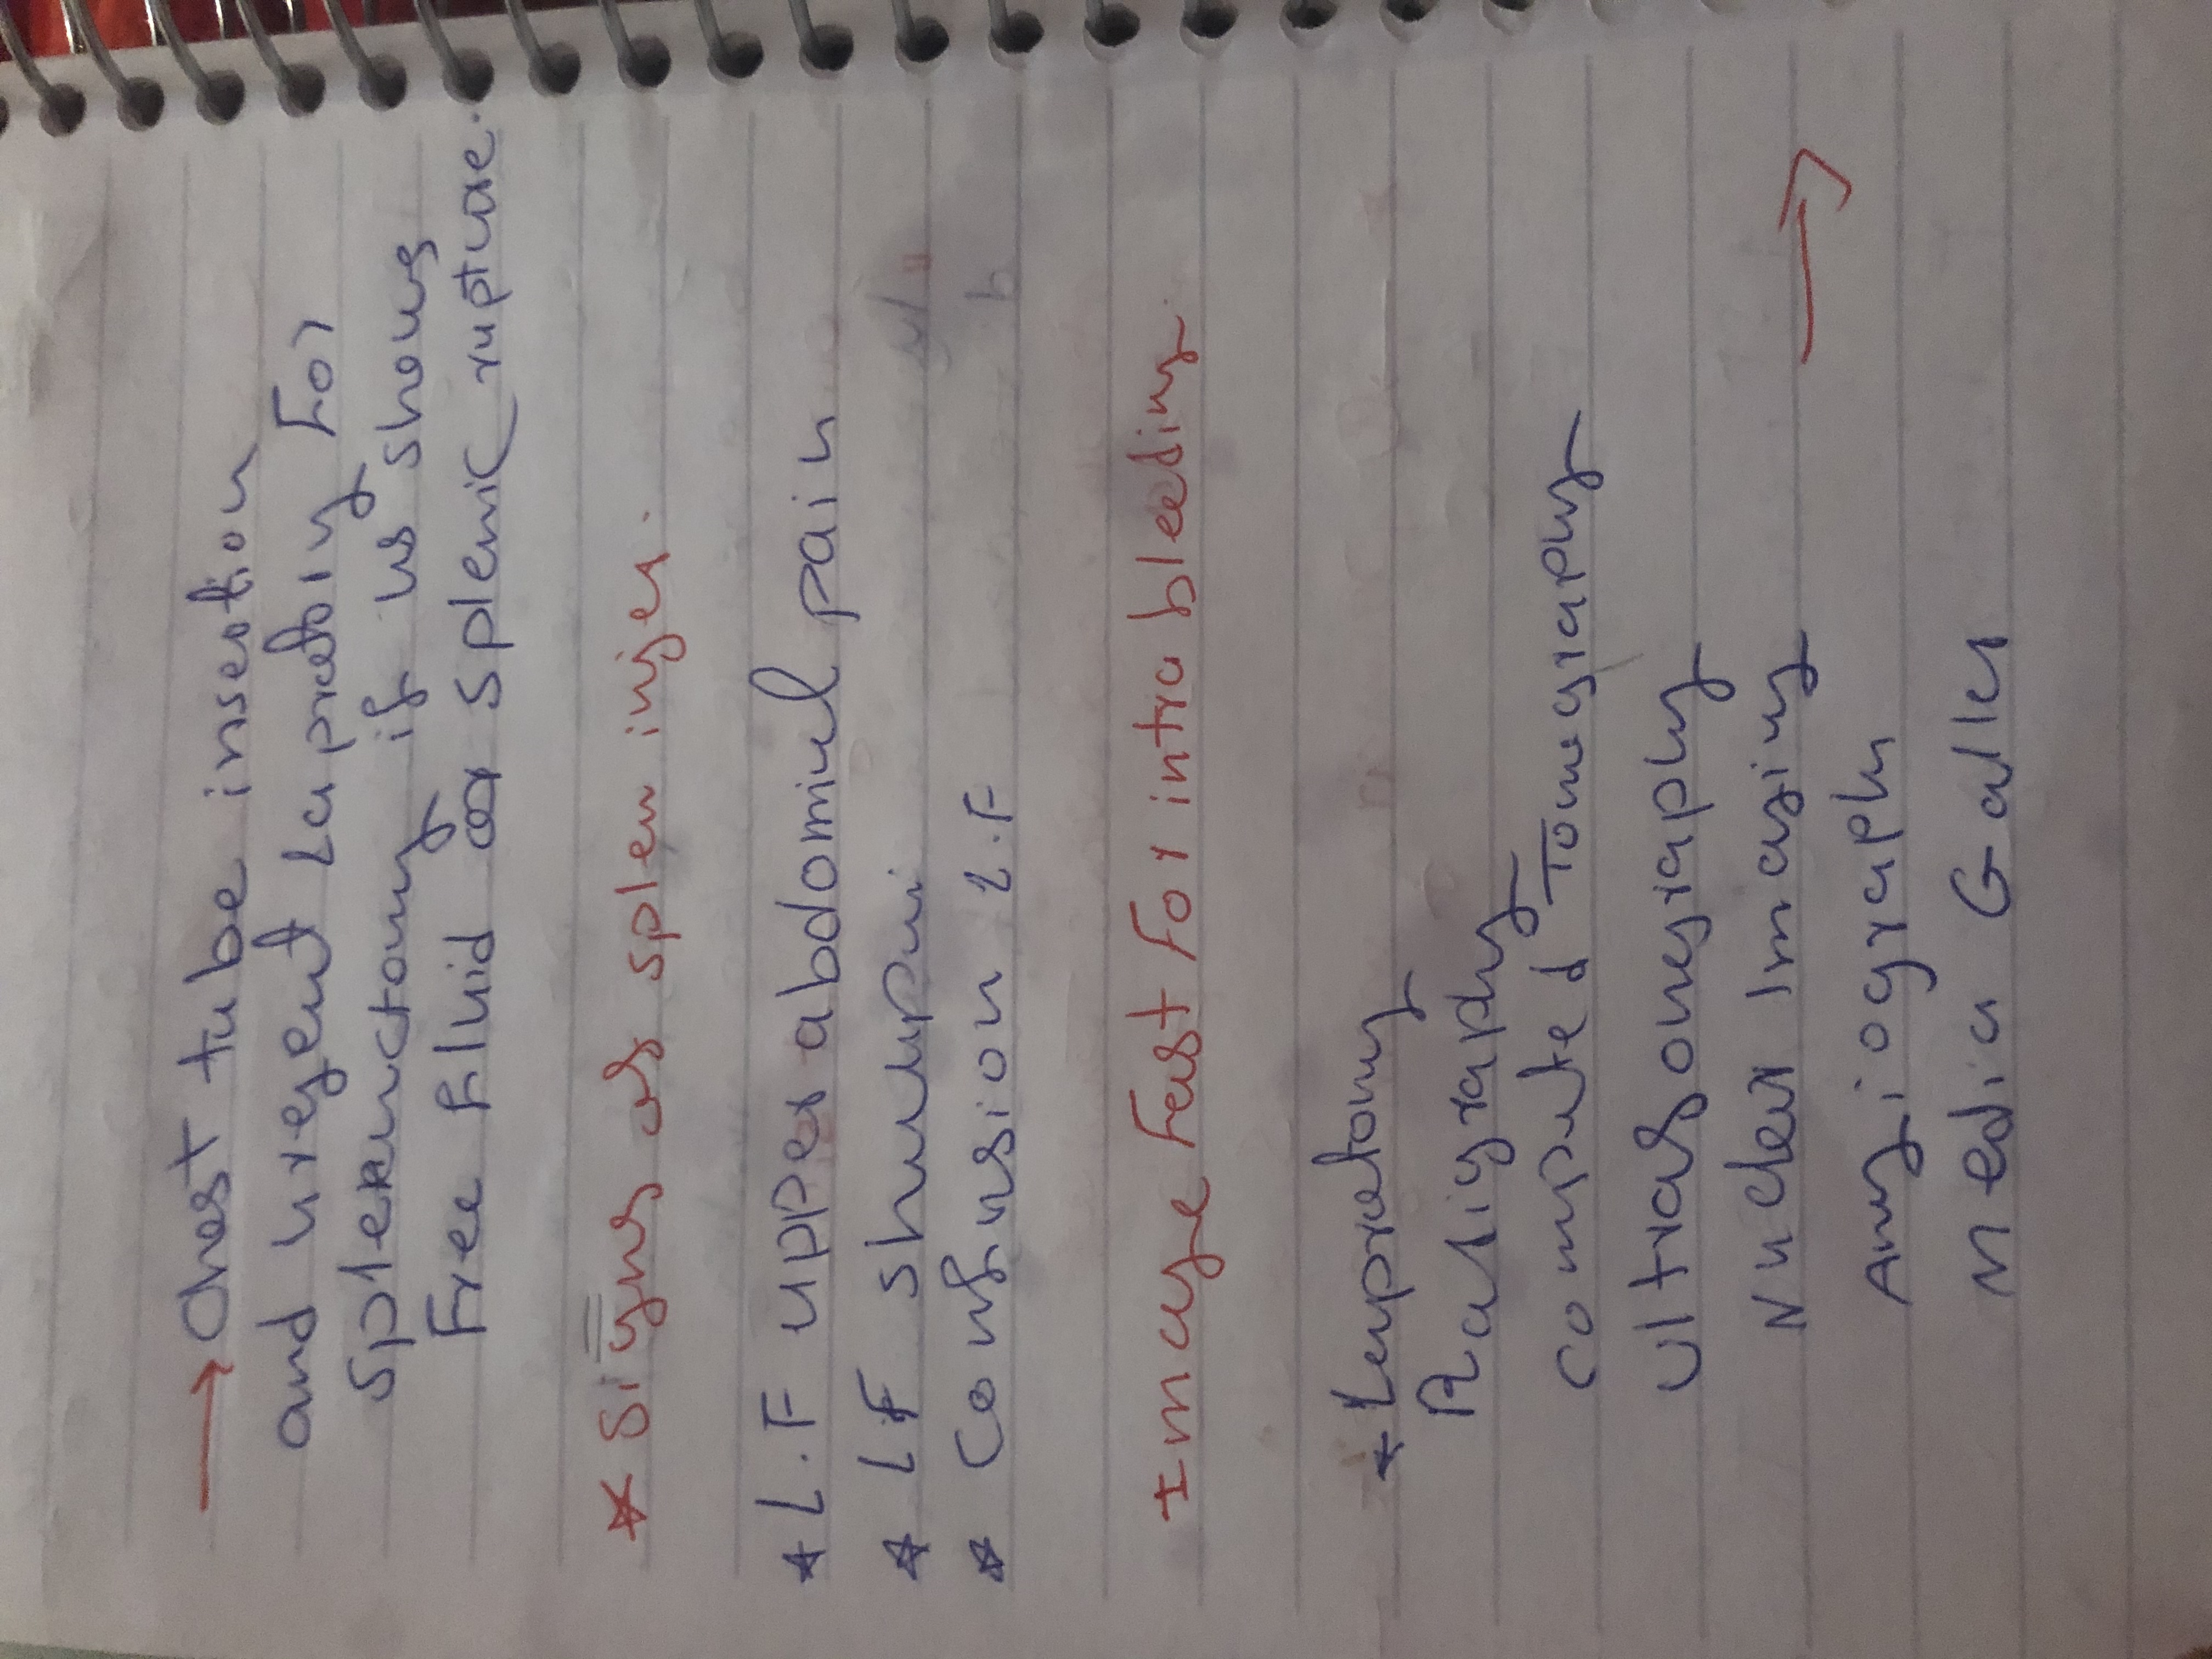 → Chest tube insertion
and urgent Lapretoiy For
splenectomy if us shows
Free Fluid or splenic rupturae.
* Signs of splen injer.
* L.F upper abdominal pain
* LF shoulpni
* Confusion L.F
Image Fast For intra bleeding.
* Lapretomy
Radiography
computed Tomography
Ultrasonography
Nuclear Imaging
→
Angiograph
Media Galler